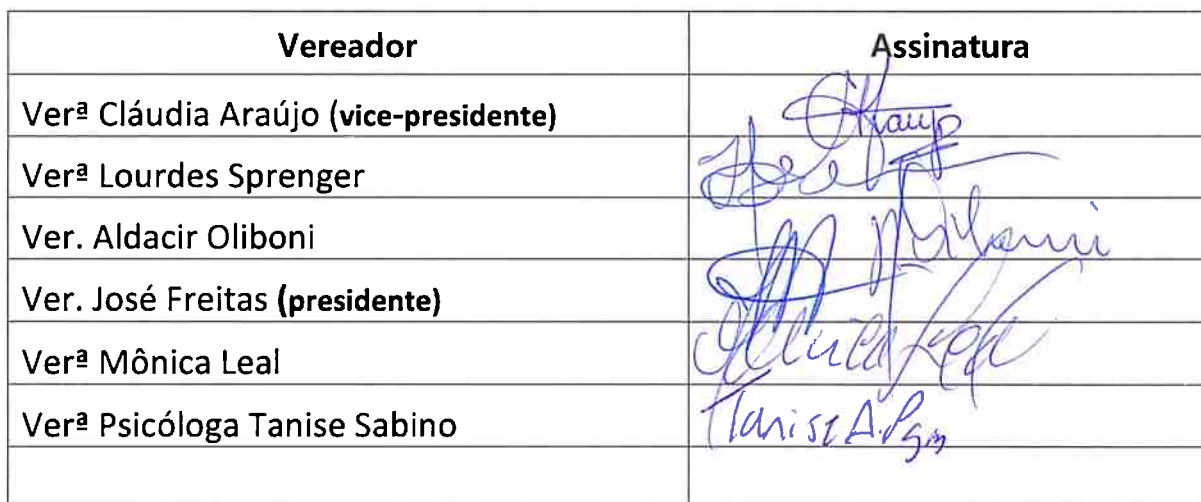 Vereador Assinatura
Verª Cláudia Araújo (vice-presidente)
Verª Lourdes Sprenger
Ver. Aldacir Oliboni
Ver. José Freitas (presidente)
Verª Mônica Leal
Verª Psicóloga Tanise Sabino Tanise A.